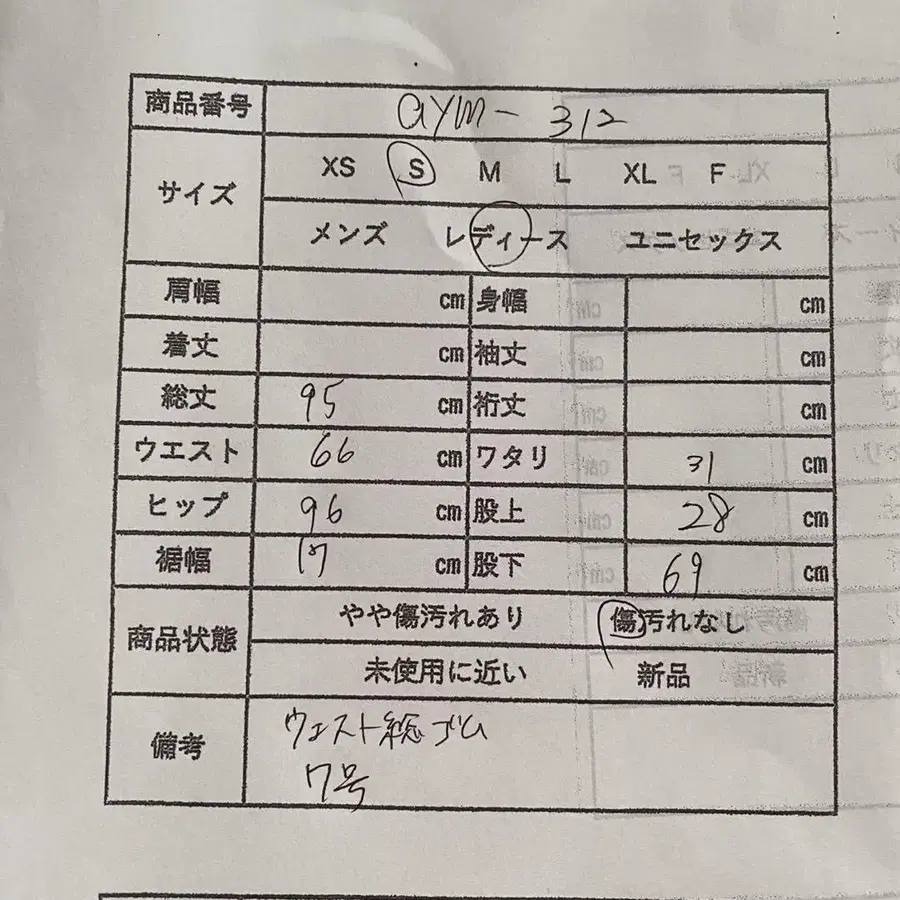 商品番号 aym- 312
サイズ XS S M L XL F
メンズ レディース ユニセックス
肩幅 cm 身幅 cm
着丈 cm 袖丈 cm
総丈 95 cm 裄丈 cm
ウエスト 66 cm ワタリ 31 cm
ヒップ 96 cm 股上 28 cm
裾幅 17 cm 股下 69 cm
商品状態 やや傷汚れあり 傷汚れなし
未使用に近い 新品
備考 ウエスト総ゴム
7号